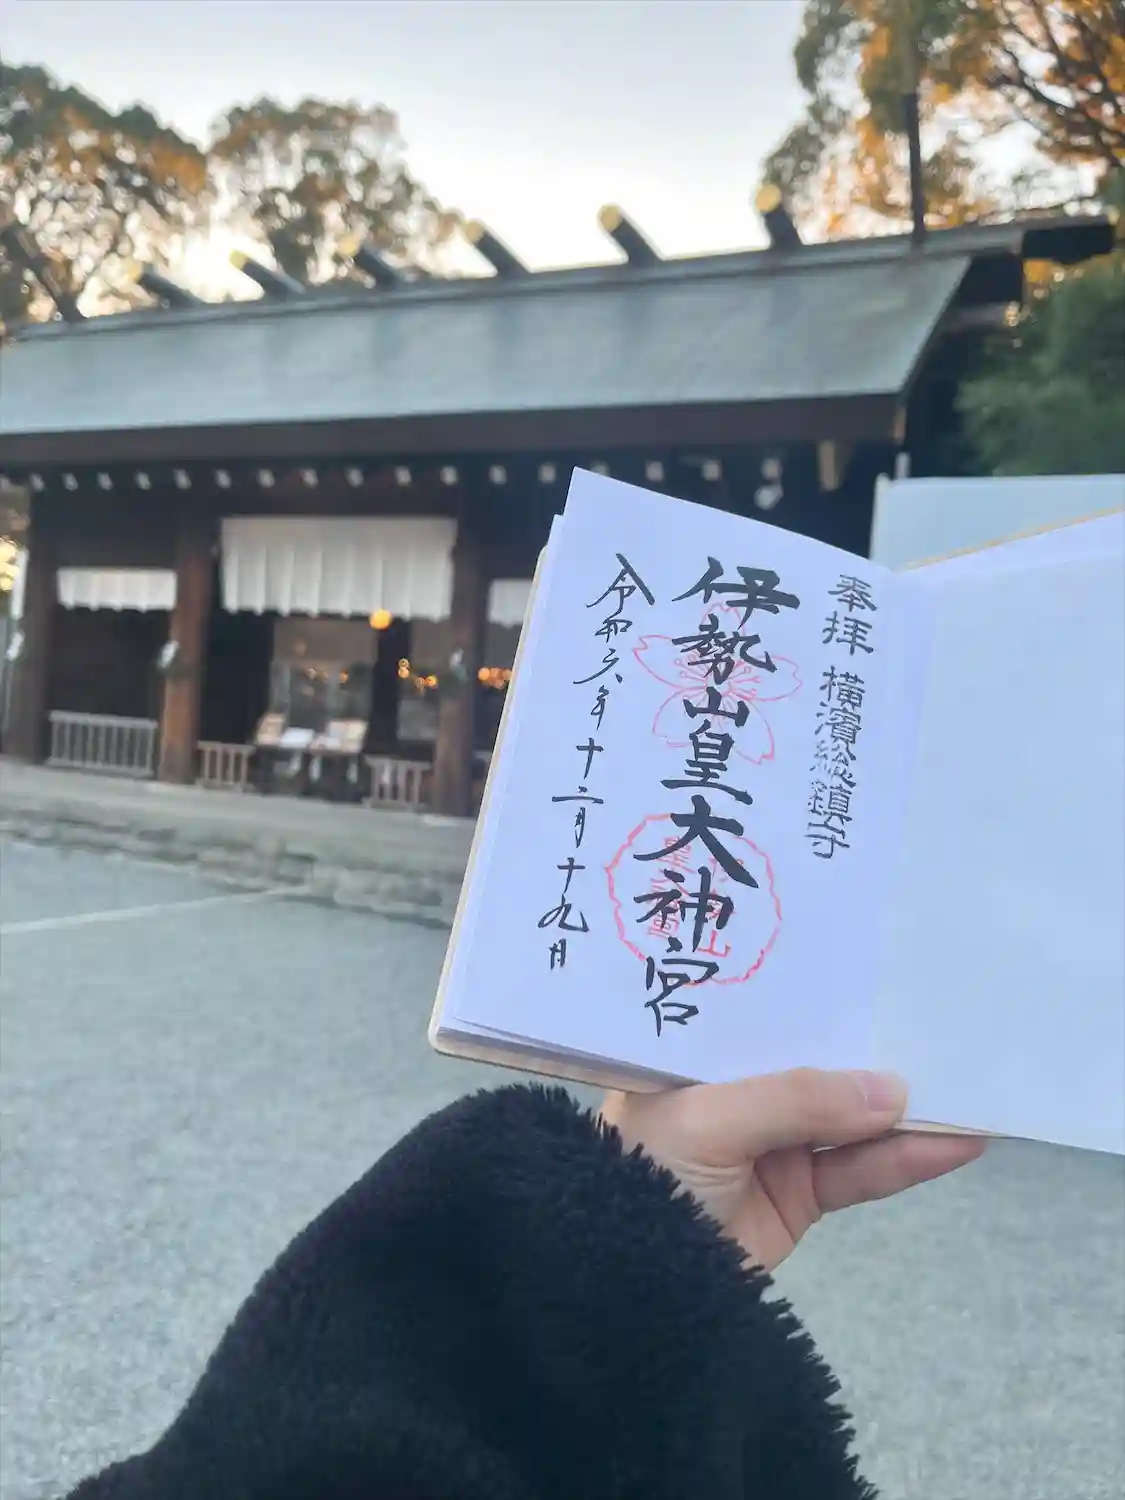 奉拝 横濱総鎮守
伊勢山皇大神宮
令和六年十二月十九日